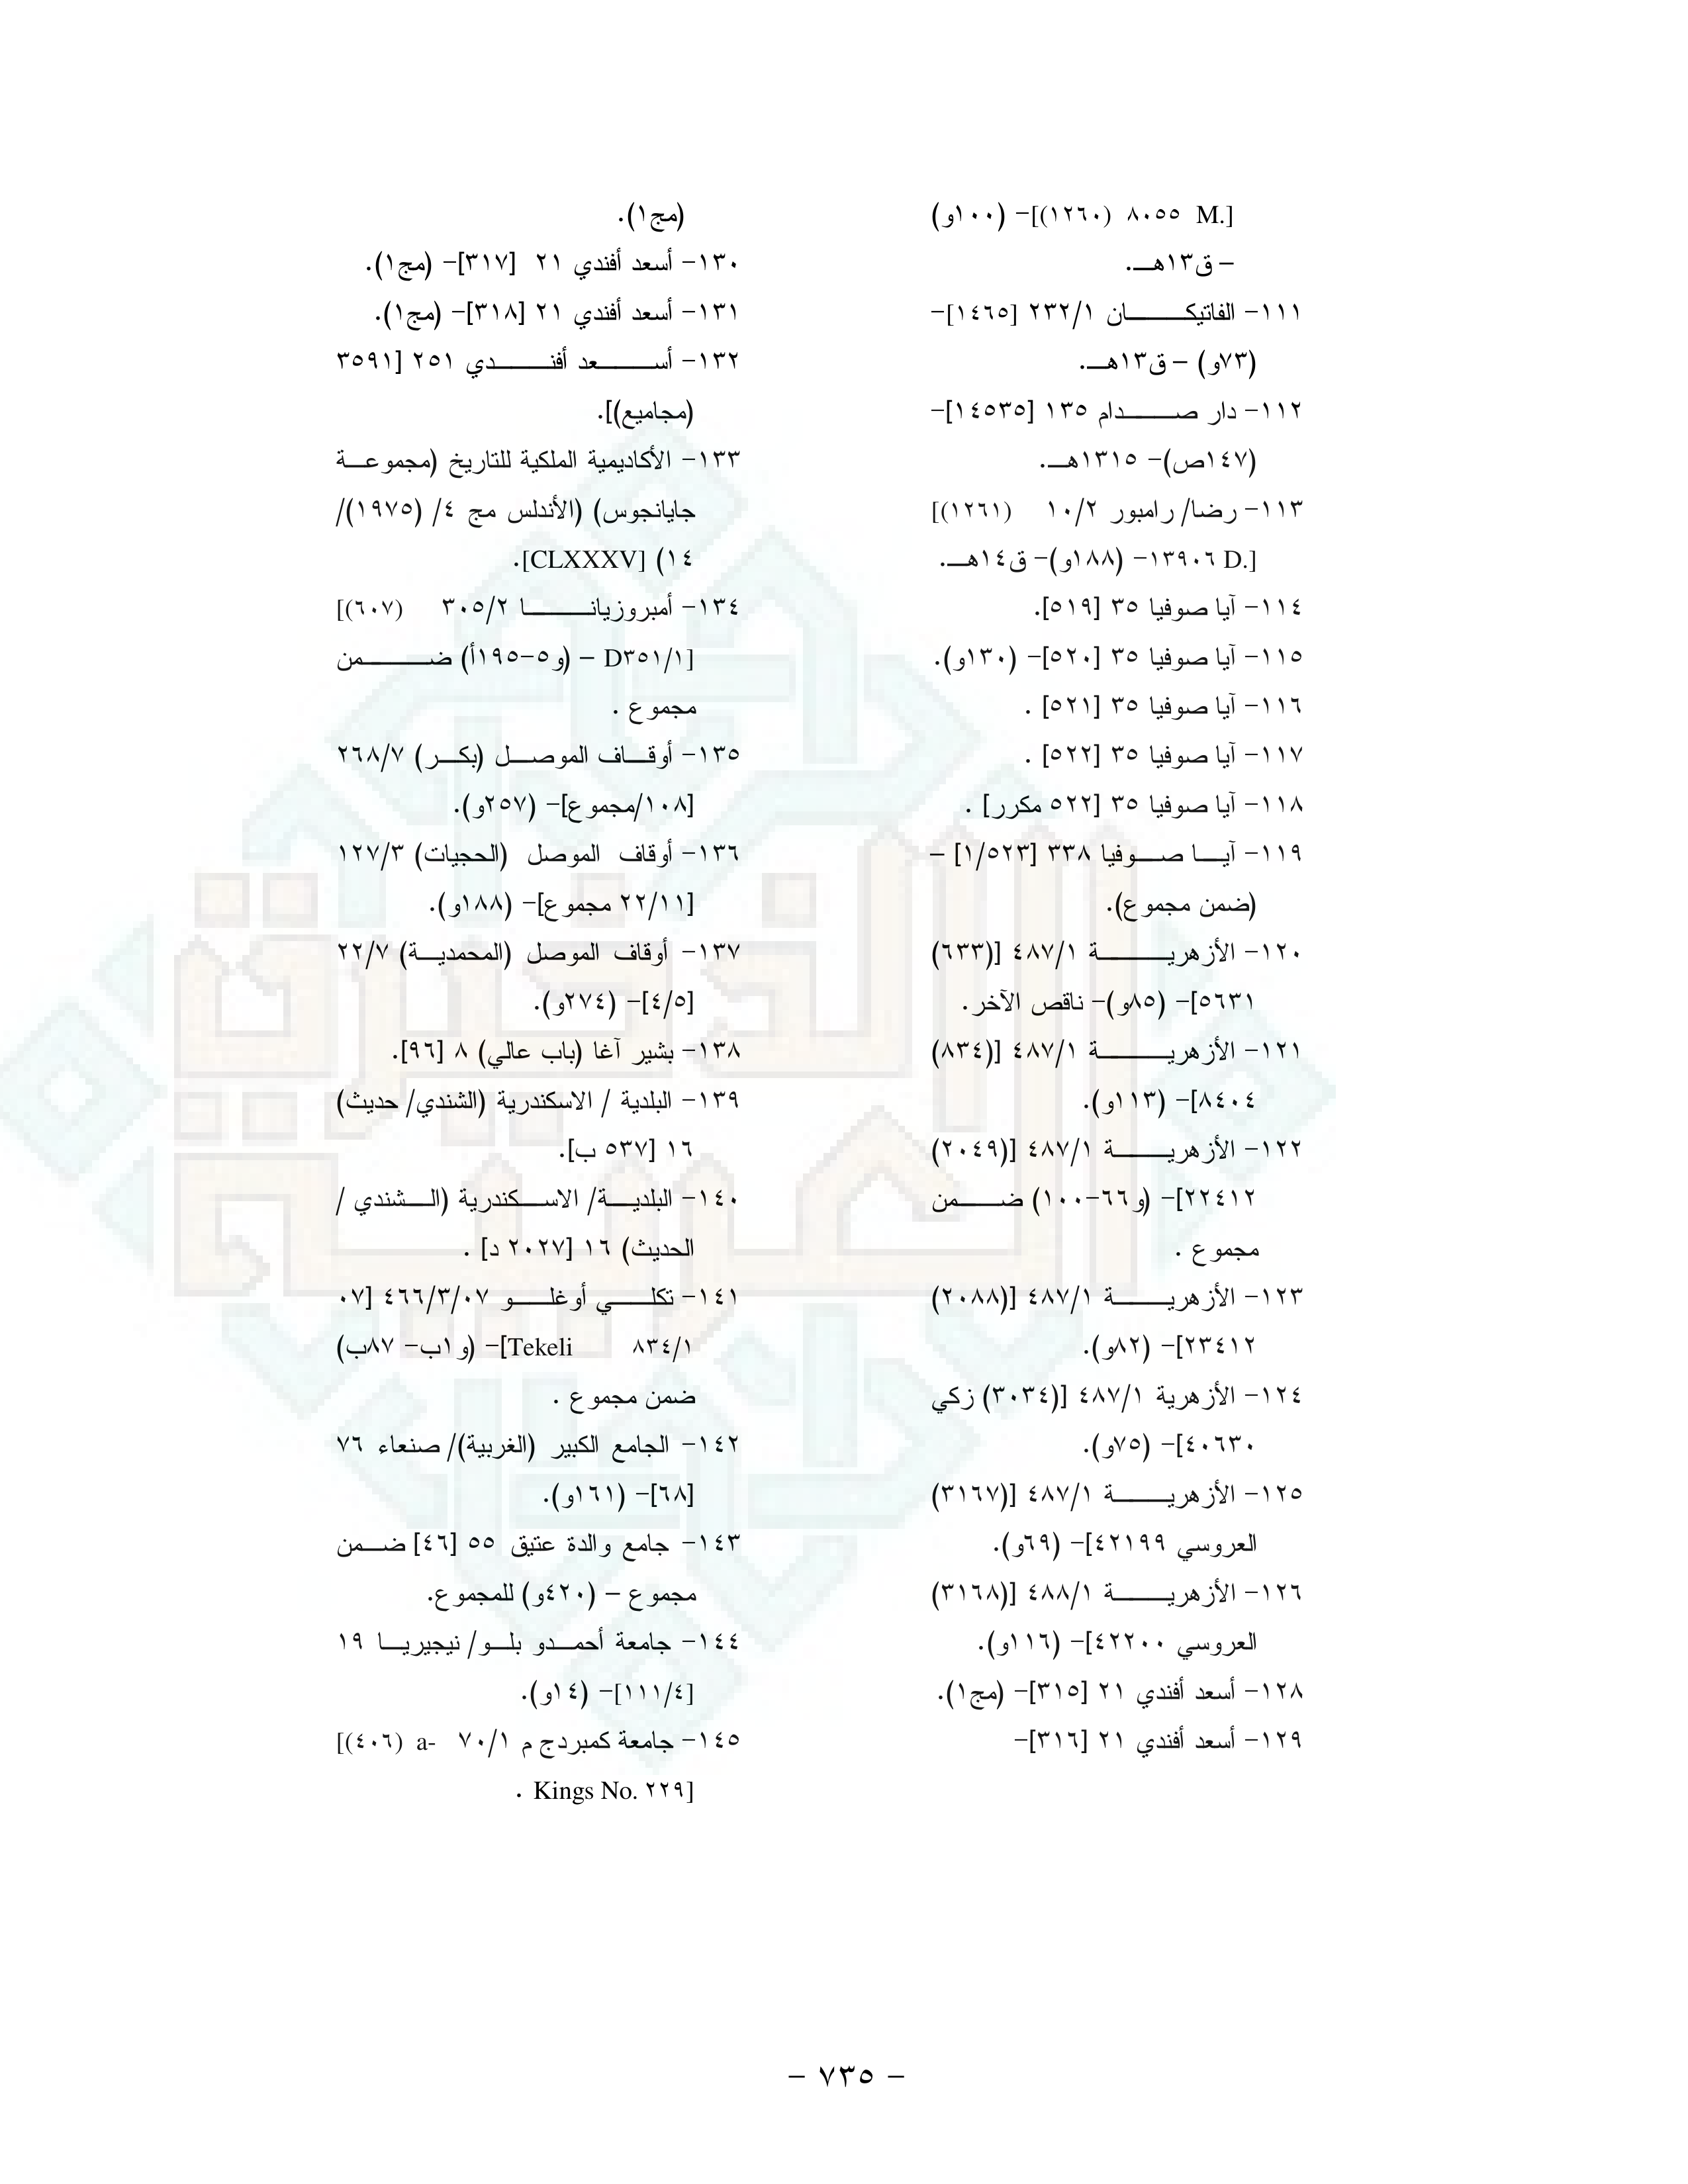 [.M ٨٠٥٥ (١٢٦٠)]- (١٠٠و)
– ق١٣هـ.
١١١- الفاتيكان ٢٣٢/١ [١٤٦٥]-
(٧٣و) – ق١٣هـ.
١١٢- دار صدام ١٣٥ [١٤٥٣٥]-
(١٤٧ص)- ١٣١٥هـ.
١١٣- رضا/ رامبور ١٠/٢ [(١٢٦١)
[.D ١٣٩٠٦- (١٨٨و)- ق١٤هـ.
١١٤- آيا صوفيا ٣٥ [٥١٩].
١١٥- آيا صوفيا ٣٥ [٥٢٠]- (١٣٠و).
١١٦- آيا صوفيا ٣٥ [٥٢١] .
١١٧- آيا صوفيا ٣٥ [٥٢٢] .
١١٨- آيا صوفيا ٣٥ [٥٢٢ مكرر] .
١١٩- آيا صوفيا ٣٣٨ [١/٥٢٣] –
(ضمن مجموع).
١٢٠- الأزهرية ٤٨٧/١ [(٦٣٣)
٥٦٣١]- (٨٥و)- ناقص الآخر.
١٢١- الأزهرية ٤٨٧/١ [(٨٣٤)
٨٤٠٤]- (١١٣و).
١٢٢- الأزهرية ٤٨٧/١ [(٢٠٤٩)
٢٢٤١٢]- (و٦٦-١٠٠) ضمن
مجموع .
١٢٣- الأزهرية ٤٨٧/١ [(٢٠٨٨)
٢٣٤١٢]- (٨٢و).
١٢٤- الأزهرية ٤٨٧/١ [(٣٠٣٤) زكي
٤٠٦٣٠]- (٧٥و).
١٢٥- الأزهرية ٤٨٧/١ [(٣١٦٧)
العروسي ٤٢١٩٩]- (٦٩و).
١٢٦- الأزهرية ٤٨٨/١ [(٣١٦٨)
العروسي ٤٢٢٠٠]- (١١٦و).
١٢٨- أسعد أفندي ٢١ [٣١٥]- (مج١).
١٢٩- أسعد أفندي ٢١ [٣١٦]-
(مج١).
١٣٠- أسعد أفندي ٢١ [٣١٧]- (مج١).
١٣١- أسعد أفندي ٢١ [٣١٨]- (مج١).
١٣٢- أسعد أفندي ٢٥١ [٣٥٩١
(مجاميع)].
١٣٣- الأكاديمية الملكية للتاريخ (مجموعة
جايانجوس) (الأندلس مج ٤/ (١٩٧٥)/
١٤) [CLXXXV].
١٣٤- أمبروزيانا ٣٠٥/٢ [(٦٠٧)
[D٣٥١/١ – (و٥-١٩٥أ) ضمن
مجموع .
١٣٥- أوقاف الموصل (بكر) ٢٦٨/٧
[١٠٨/مجموع]- (٢٥٧و).
١٣٦- أوقاف الموصل (الحجيات) ١٢٧/٣
[٢٢/١١ مجموع]- (١٨٨و).
١٣٧- أوقاف الموصل (المحمدية) ٢٢/٧
[٤/٥]- (٢٧٤و).
١٣٨- بشير آغا (باب عالي) ٨ [٩٦].
١٣٩- البلدية / الاسكندرية (الشندي/ حديث)
١٦ [٥٣٧ ب].
١٤٠- البلدية/ الاسكندرية (الشندي /
الحديث) ١٦ [٢٠٢٧ د] .
١٤١- تكلي أوغلو ٤٦٦/٣/٠٧ [٠٧
Tekeli ٨٣٤/١]- (و١ب- ٨٧ب)
ضمن مجموع .
١٤٢- الجامع الكبير (الغربية)/ صنعاء ٧٦
[٦٨]- (١٦١و).
١٤٣- جامع والدة عتيق ٥٥ [٤٦] ضمن
مجموع – (٤٢٠و) للمجموع.
١٤٤- جامعة أحمدو بلو/ نيجيريا ١٩
[١١١/٤]- (١٤و).
١٤٥- جامعة كمبردج م ٧٠/١ -a [(٤٠٦)
[Kings No. ٢٢٩ .
- ٧٣٥ -
الذخيرة
العربية